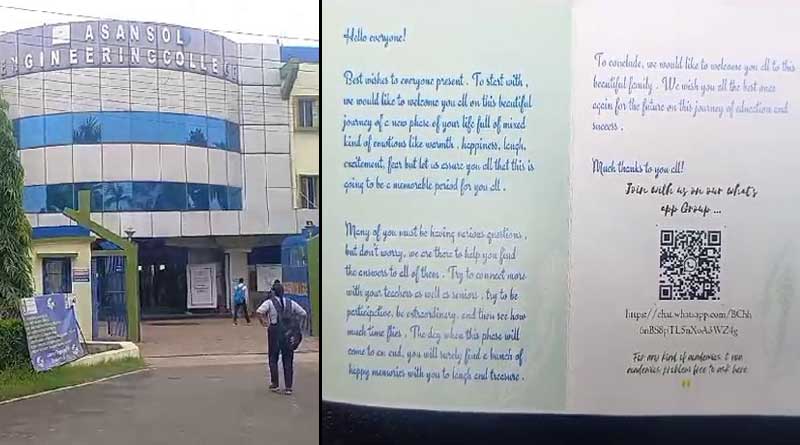 ASANSOL
ENGINEERING COLLEGE
Hello everyone!
Best wishes to everyone present. To start with,
we would like to welcome you all on this beautiful
journey of a new phase of your life full of mixed
kind of emotions like warmth, happiness, laugh,
excitement, fear but let us assure you all that this is
going to be a memorable period for you all.
Many of you must be having various questions,
but don't worry, we are there to help you find
the answers to all of them. Try to connect more
with your teachers as well as seniors, try to be
participative, be extraordinary, and then see how
much time flies. The day when this phase will
come to an end, you will surely find a bunch of
happy memories with you to laugh and treasure.
To conclude, we would like to welcome you all to this
beautiful family. We wish you all the best once
again for the future on this journey of education and
success.
Much thanks to you all!
Join with us on our what's
app Group ...
https://chat.whatsapp.com/BChh
For any kind of academics & non
academics problem feel free to ask here.